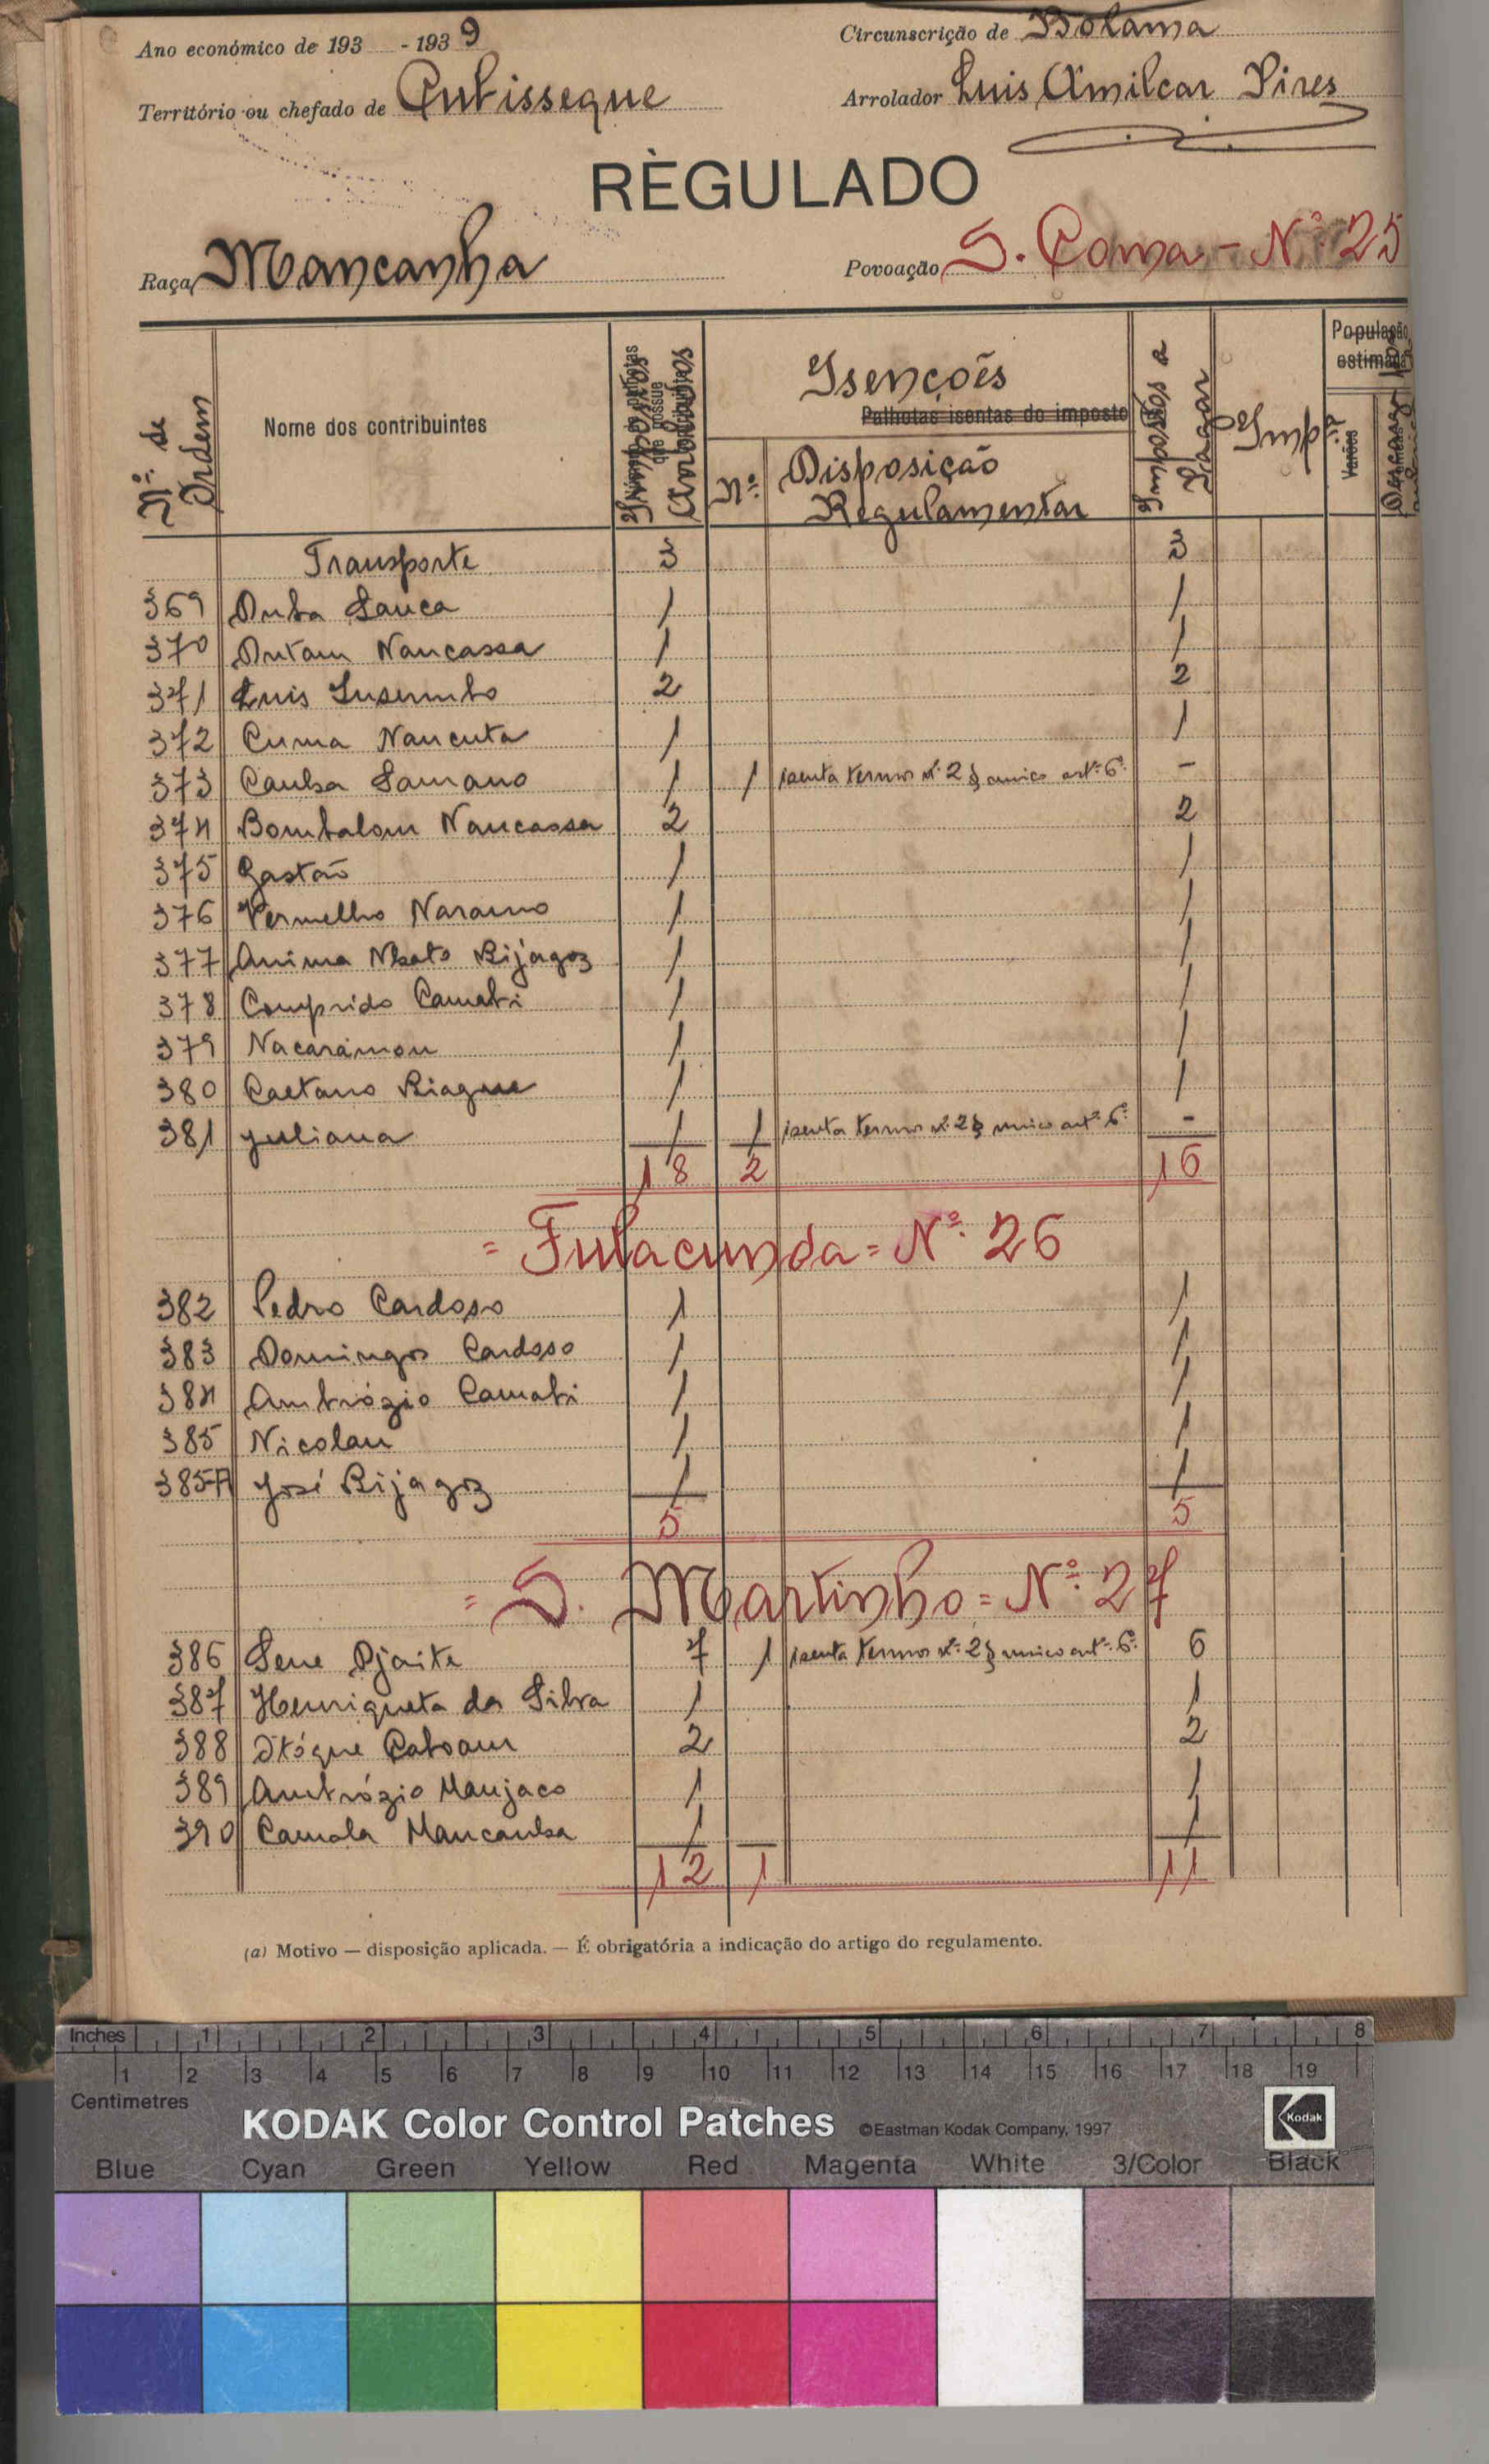 Ano económico de 193 - 1939
Circunscrição de Bolama
Território ou chefado de Cutissegue
Arrolador Luis Amilcar Pires
RÈGULADO
Raça Mancanha
Povoação S. Coma - Nº 25
Nº de Ordem
Nome dos contribuintes
Impostos
Isenções
Palhotas isentas do imposto
Nº
Disposição Regulamentar
Impostos a Pagar
Imp
População estimada
Varões
Transporte 3 3
369 Duba Sanca 1 1
370 Dutam Nancassa 1 1
371 Luis 2 2
372 Cuma Nancuta 1 1
373 Canha 1 1 isenta termos nº 2 § unico artº 6º -
374 Bombalom Nancassa 2 2
375 Gastão 1 1
376 Vermelho Naramo 1 1
377 Anima Bijagoz 1 1
378 Comprido Camati 1 1
379 Nacaramou 1 1
380 Caetano Biague 1 1
381 Juliana 1 1 isenta termos nº 2 § unico artº 6º -
18 2 16
= Fulacunda = Nº 26
382 Pedro Cardoso 1 1
383 Domingos Cardoso 1 1
384 Ambrózio Camati 1 1
385 Nicolau 1 1
385-A José Bijagoz 1 1
5 5
= S. Martinho = Nº 27
386 Sene Djaite 7 1 isenta termos nº 2 § unico artº 6º 6
387 Henriqueta da Silva 1 1
388 2 2
389 Ambrózio Manjaco 1 1
390 Camala Mancanha 1 1
12 1 11
(a) Motivo — disposição aplicada. — É obrigatória a indicação do artigo do regulamento.
Inches 1 2 3 4 5 6 7 8
1 2 3 4 5 6 7 8 9 10 11 12 13 14 15 16 17 18 19
Centimetres
KODAK Color Control Patches ©Eastman Kodak Company, 1997
Kodak
Blue Cyan Green Yellow Red Magenta White 3/Color Black